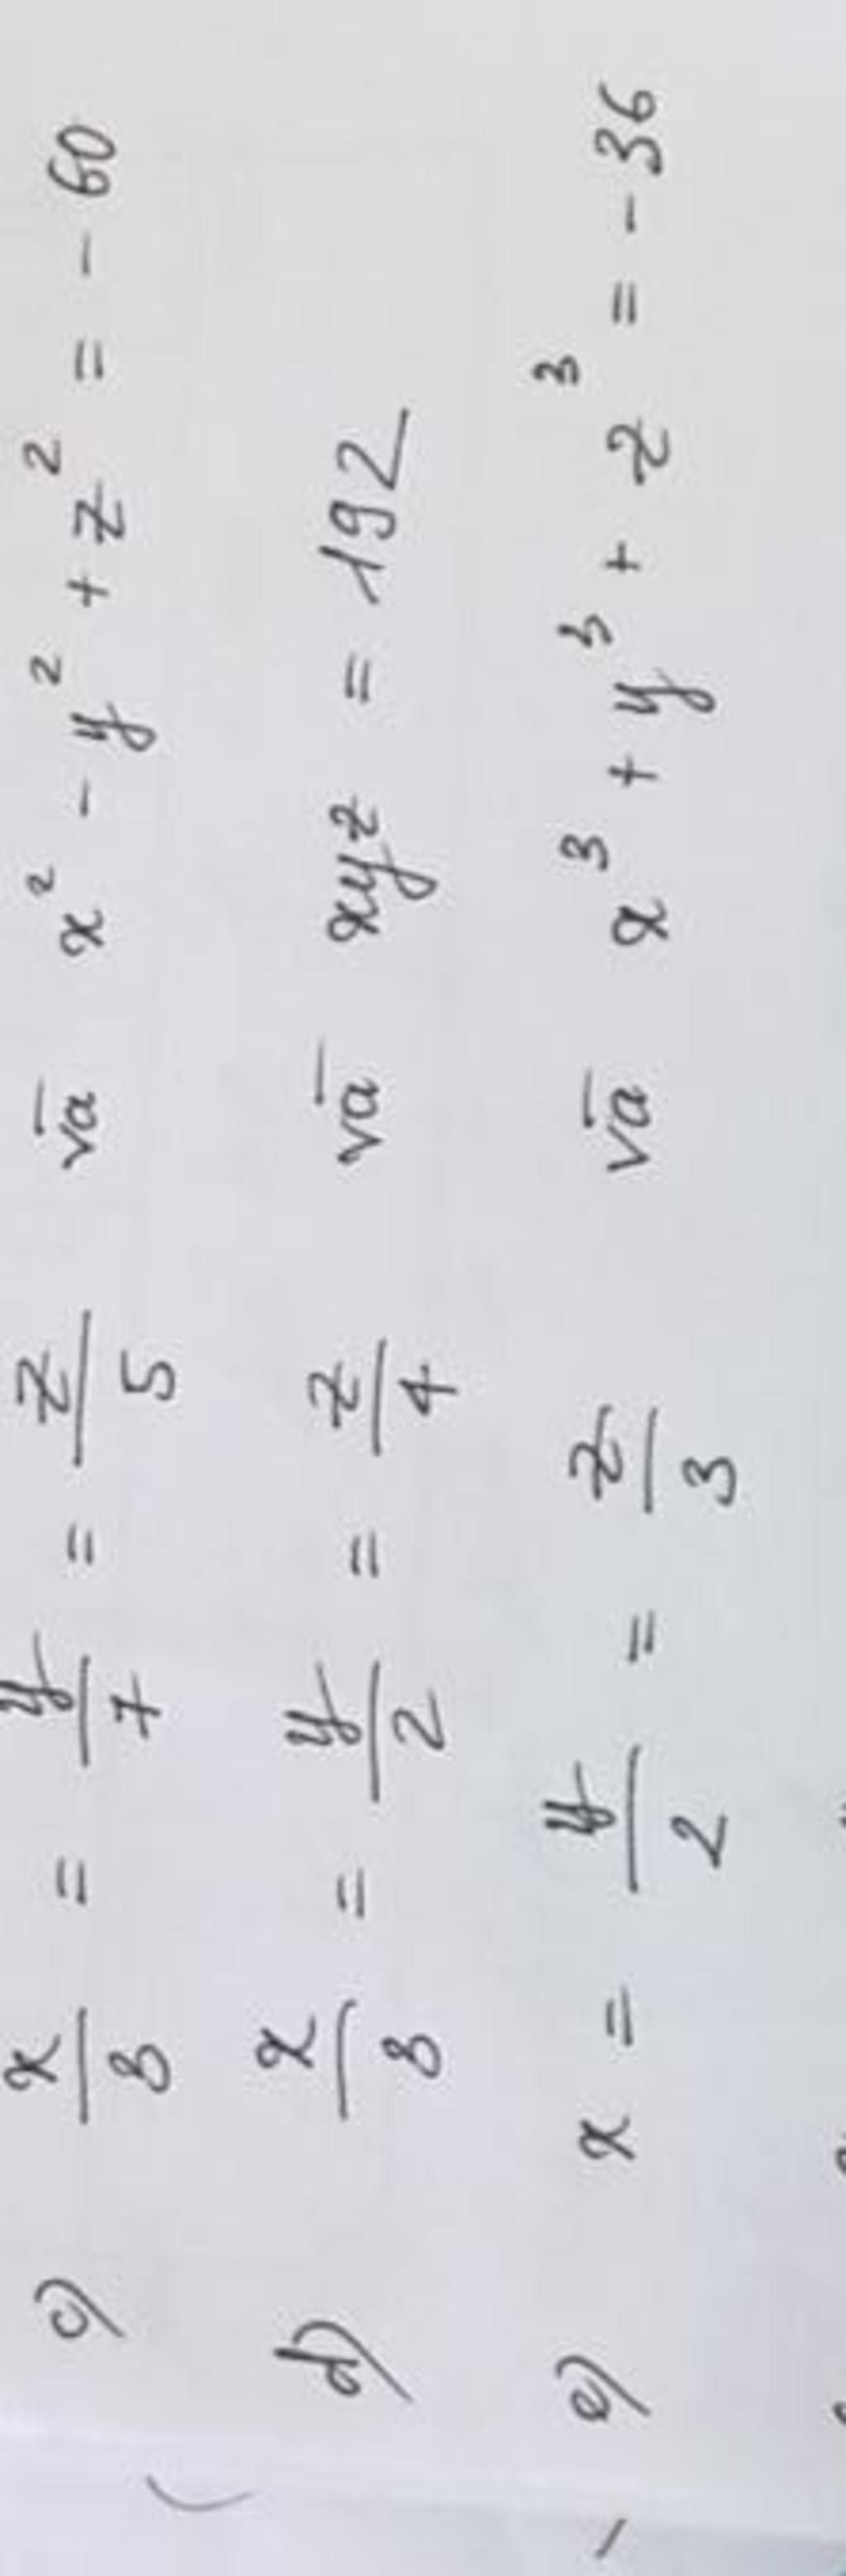 c) x/8 = y/7 = z/5 và x² - y² + z² = - 60
d) x/8 = y/2 = z/4 và xyz = 192
e) x = y/2 = z/3 và x³ + y³ + z³ = - 36